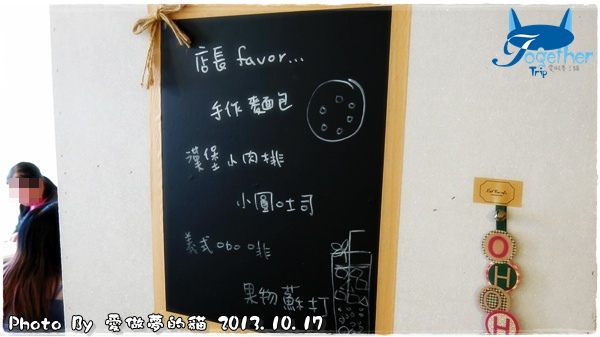 店長 favor...
手作麵包
漢堡小肉排
小圓吐司
義式咖啡
果物蘇打
Together
Trip
OHOH
Photo By 愛做夢的貓 2013.10.17